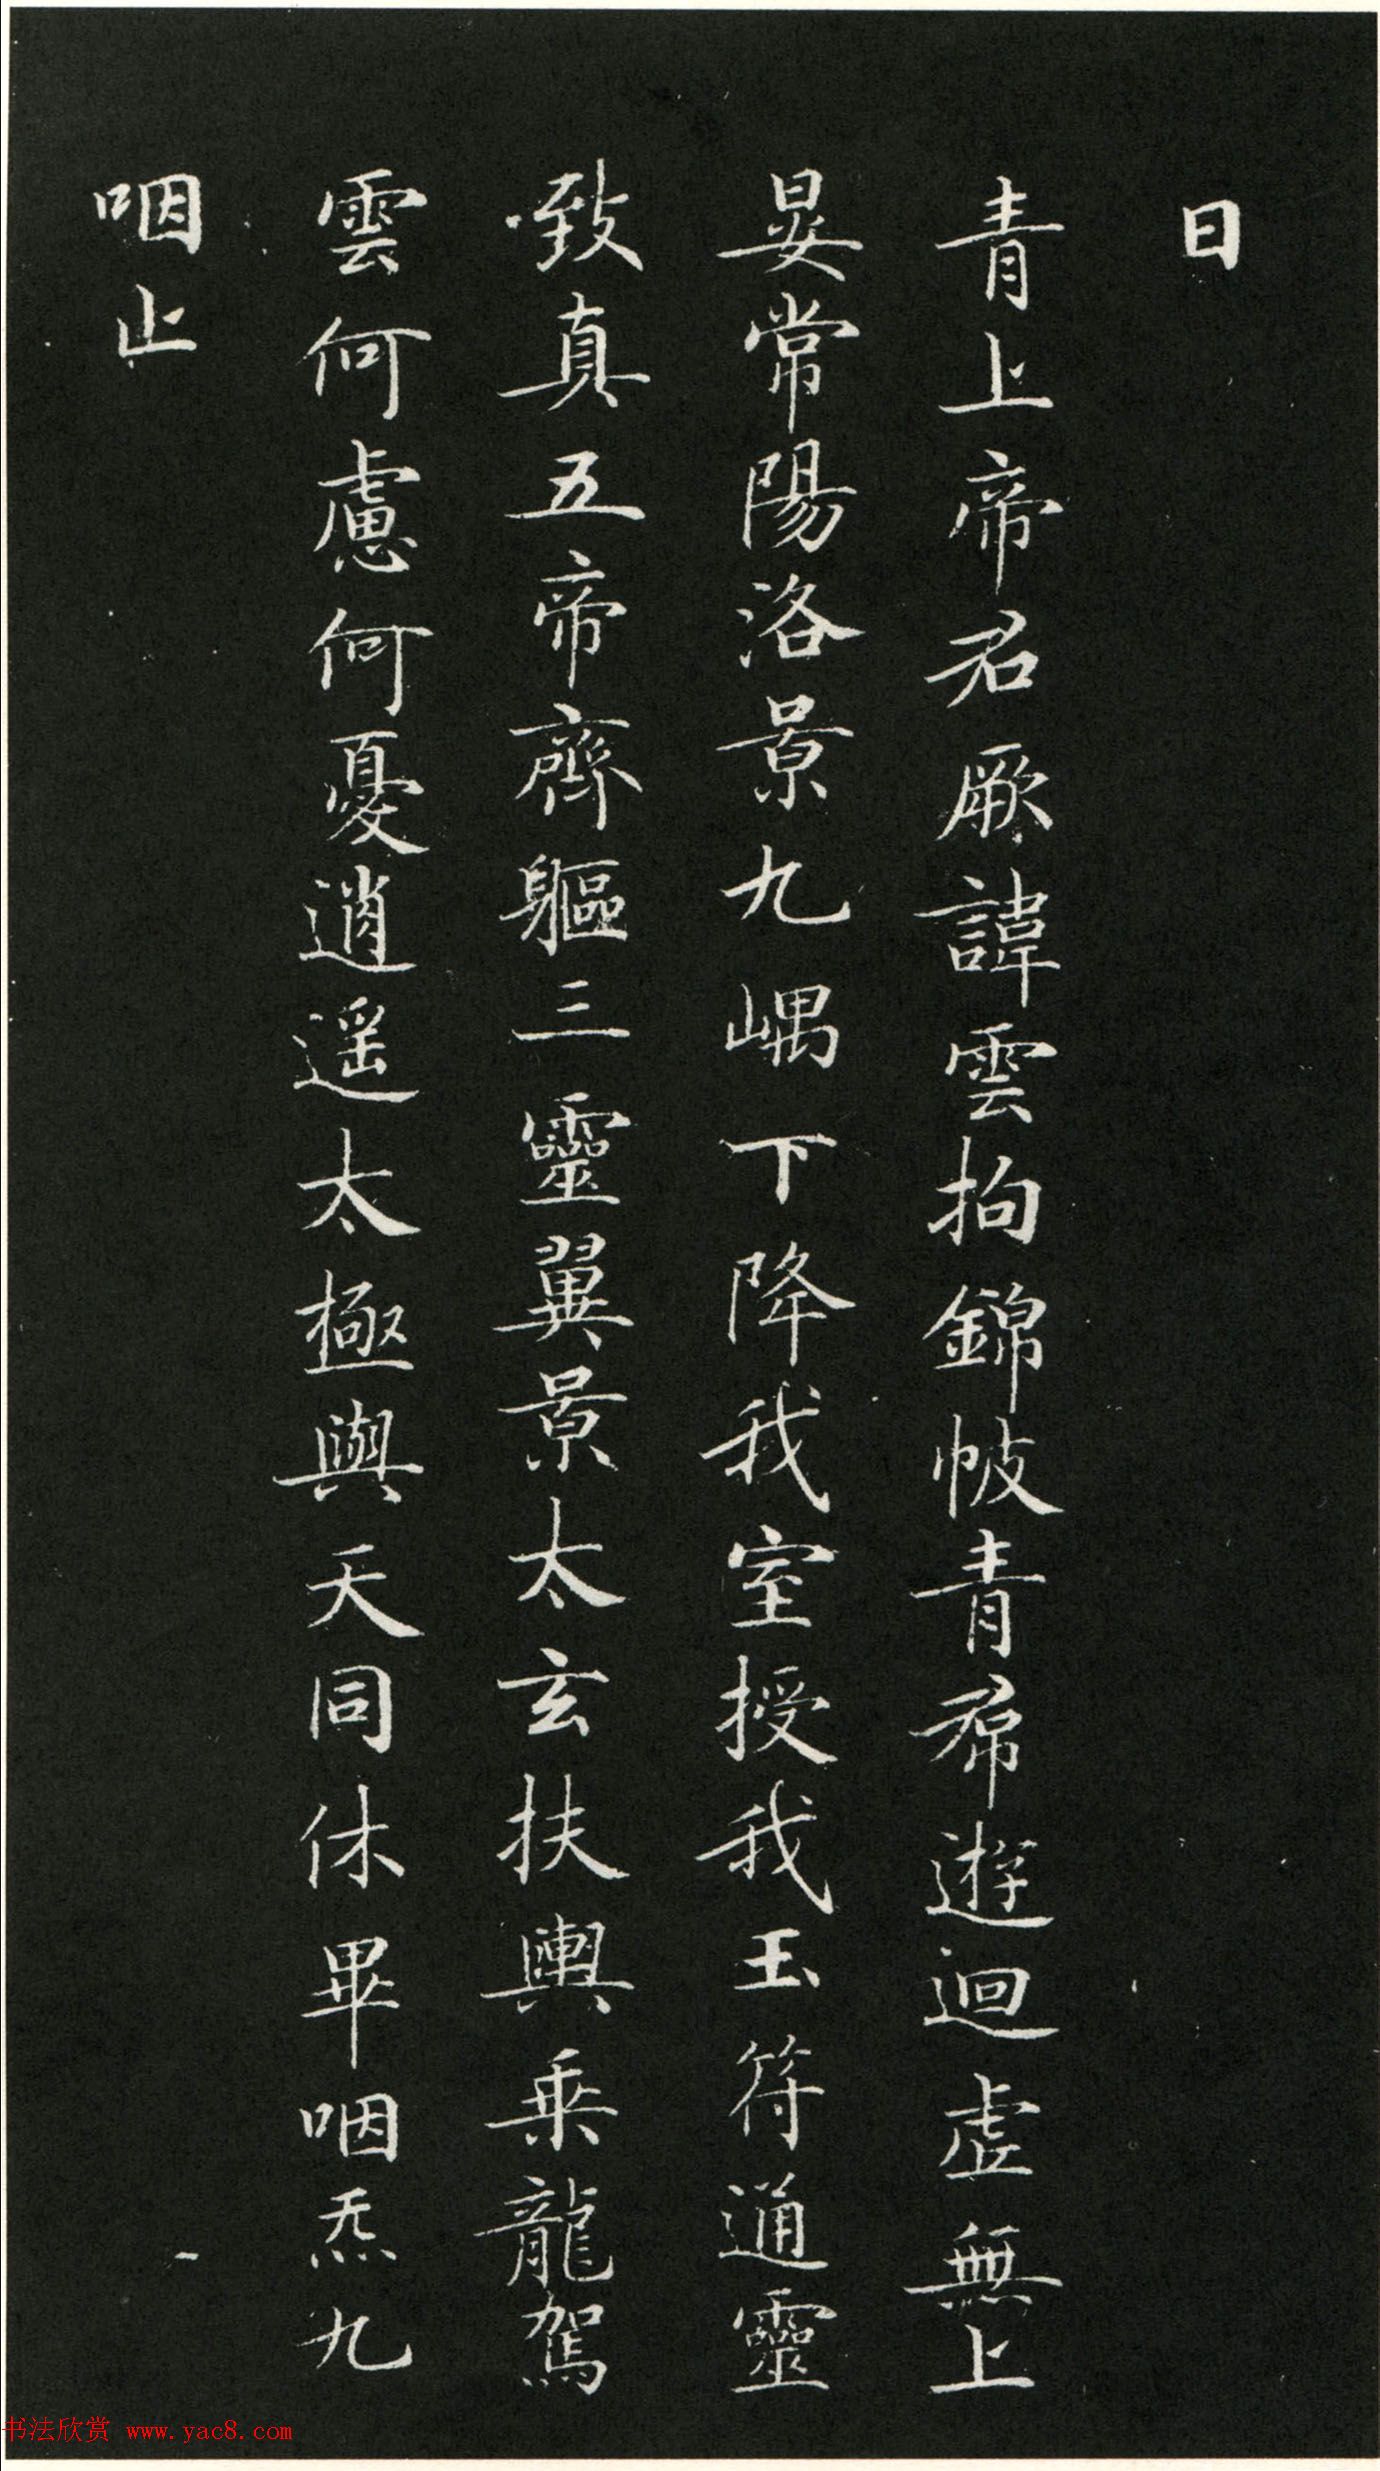 曰
青上帝君厥諱雲拘錦帔青帬遊迴虛無上
晏常陽洛景九嵎下降我室授我玉符通靈
致真五帝齊軀三靈翼景太玄扶輿乘龍駕
雲何慮何憂逍遥太極與天同休畢咽炁九
咽止
书法欣赏 www.yac8.com